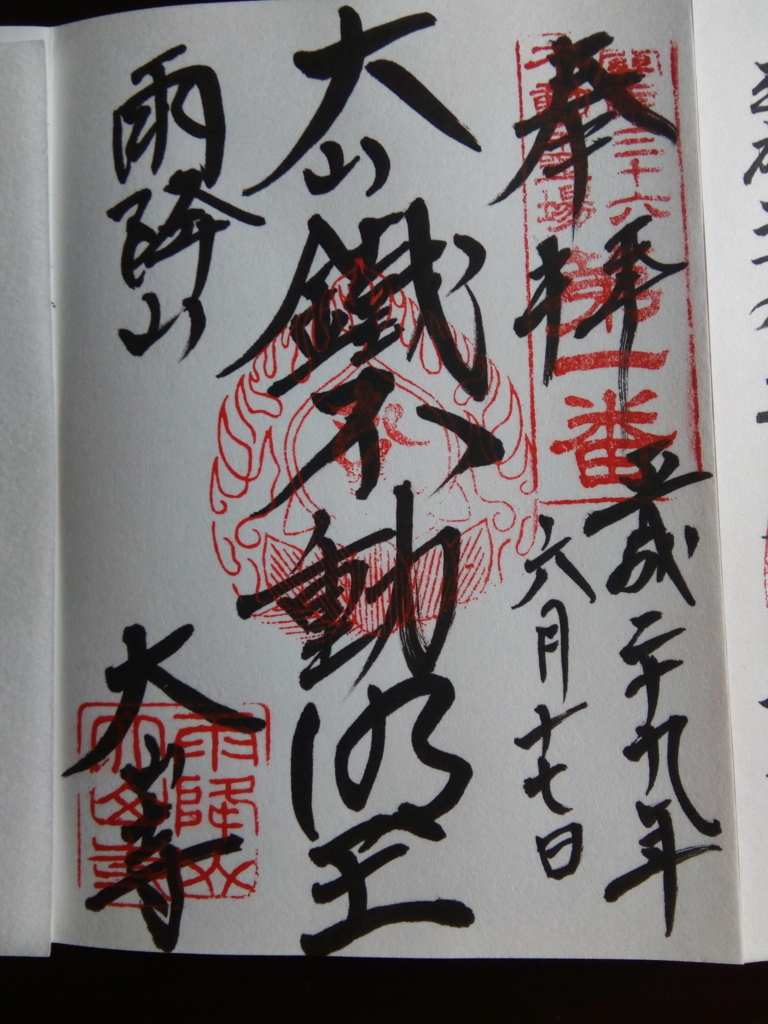 奉拝
平成二十九年
六月十七日
関東三十六
不動霊場
第一番
大山鐵不動明王
雨降山
大山寺
雨降山
大山寺